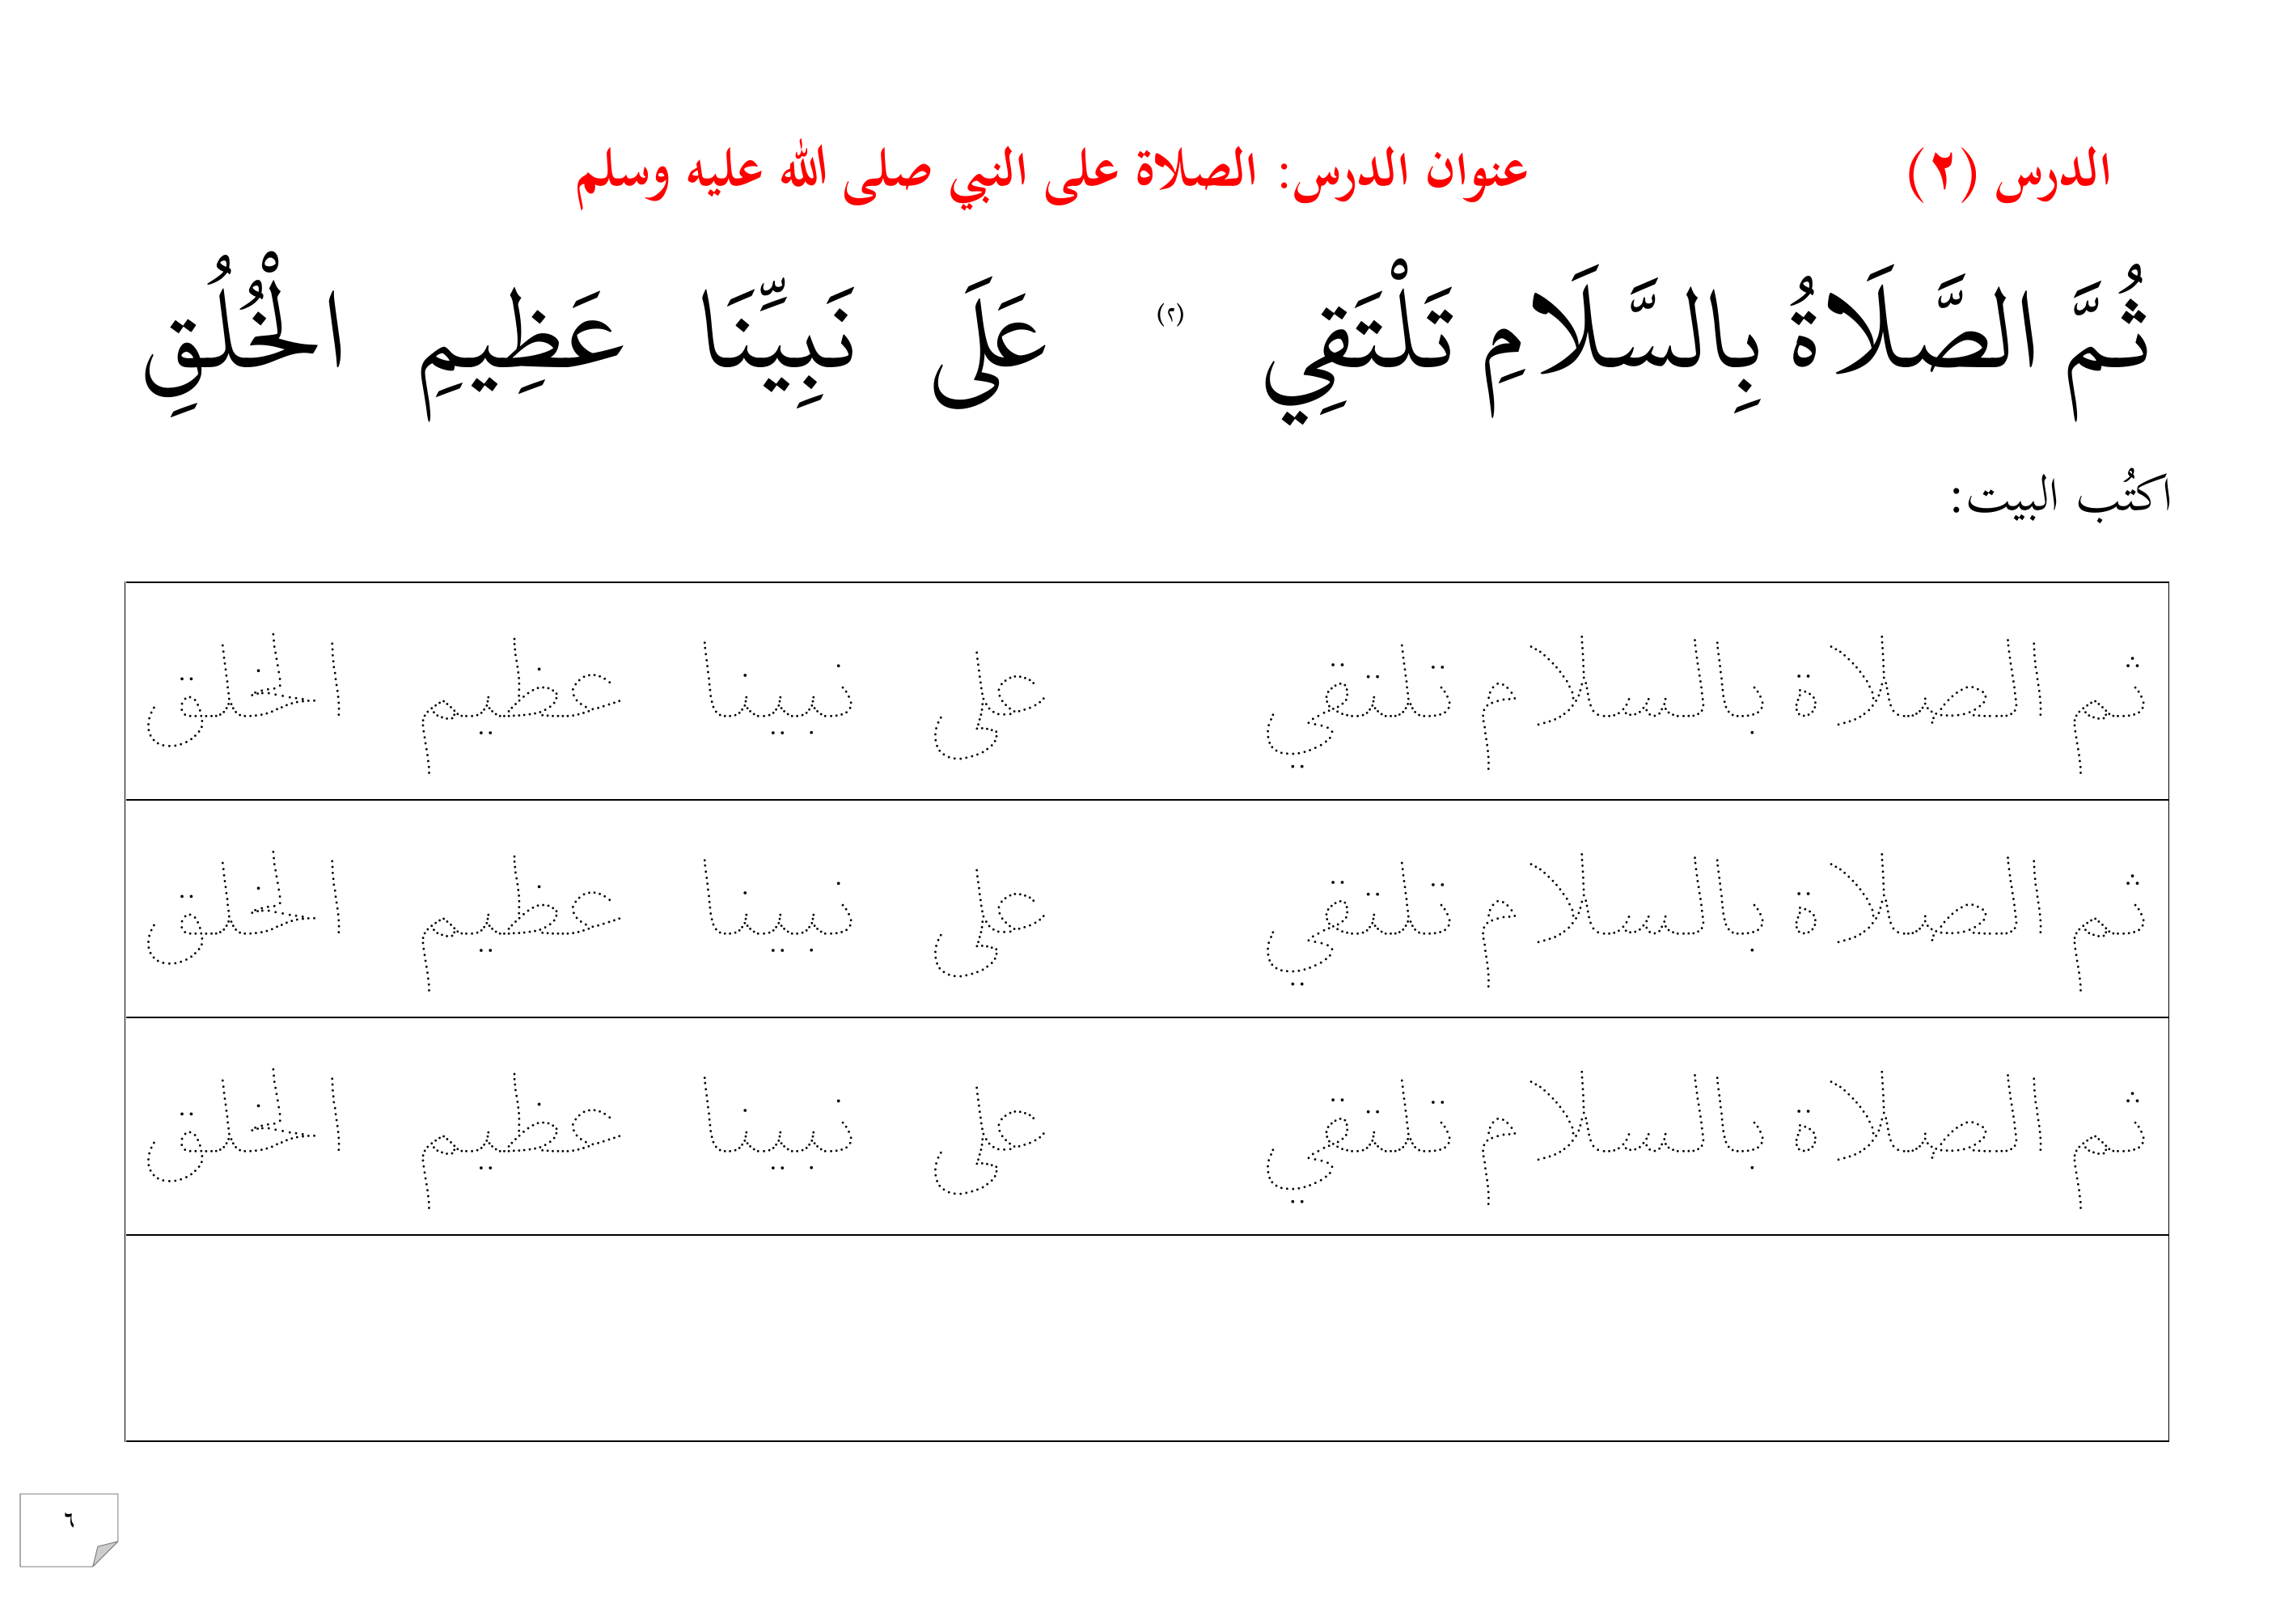 الدرس (٢) عنوان الدرس: الصلاة على النبي صلى الله عليه وسلم
ثُمَّ الصَّلَاةُ بِالسَّلَامِ تَلْتَقِي (٢) عَلَى نَبِيِّنَا عَظِيمِ الْخُلُقِ
اكتُب البيت:
ثم الصلاة بالسلام تلتقي على نبينا عظيم الخلق
ثم الصلاة بالسلام تلتقي على نبينا عظيم الخلق
ثم الصلاة بالسلام تلتقي على نبينا عظيم الخلق
٦